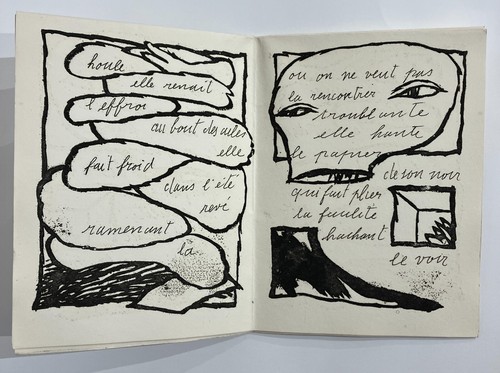 houle
elle renaît
l'effroi
au bout des ailes
elle
fait froid
dans l'été
revé
ramenant
la
ou on ne veut pas
la rencontrer
troublante
elle hante
le papier
de son noir
qui fait plier
la
hachant
le voir